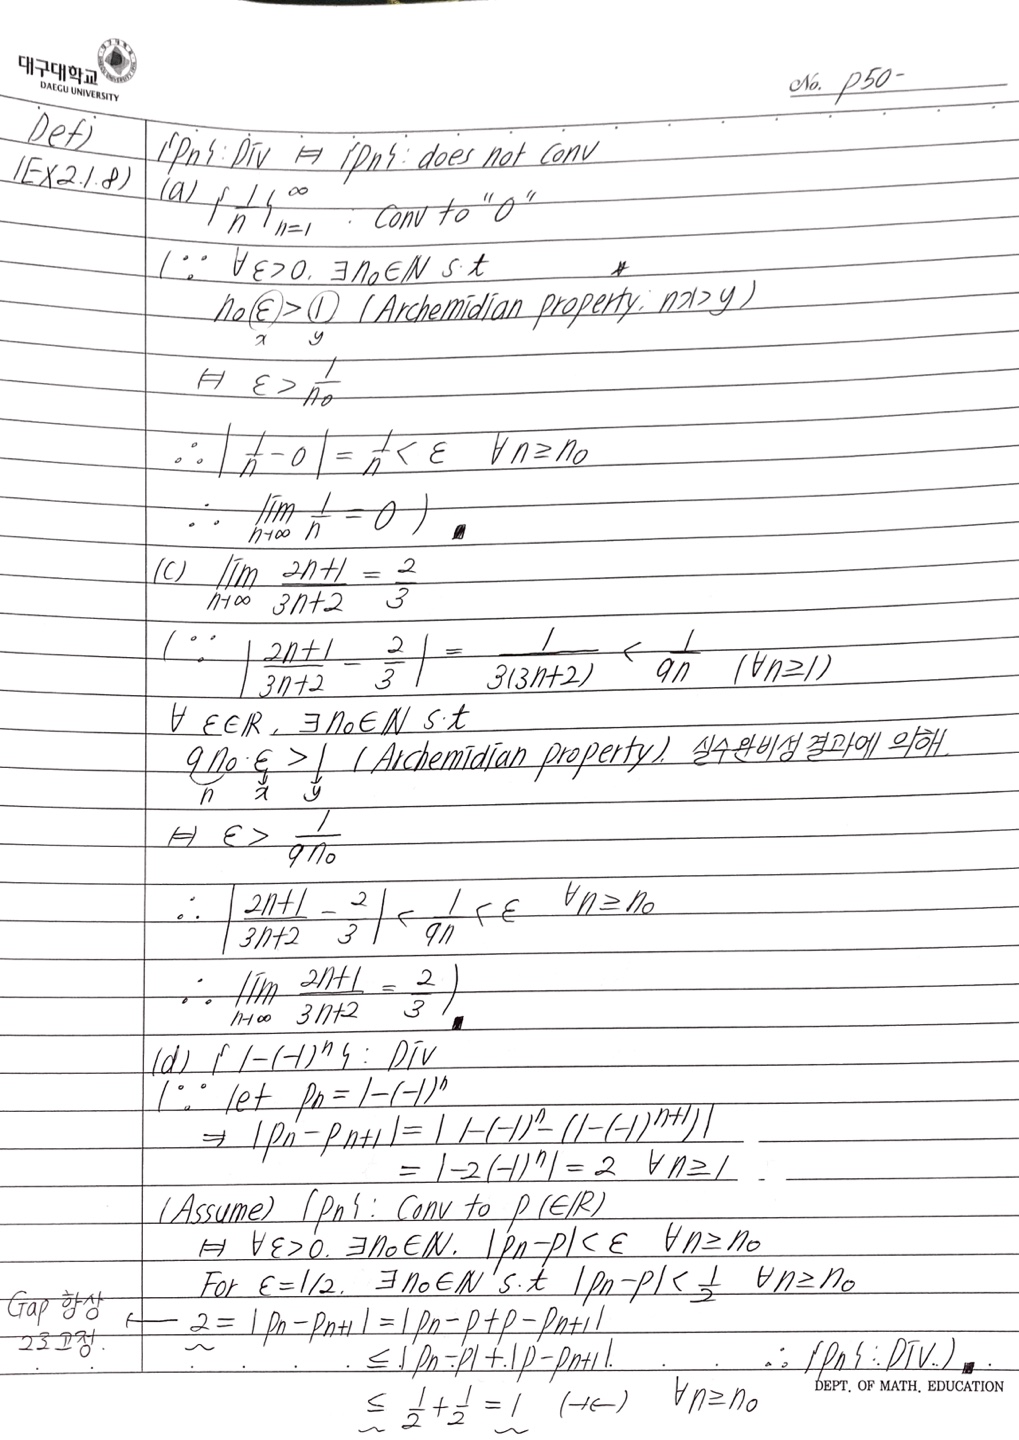 대구대학교
DAEGU UNIVERSITY
No. p50-
Def) {pn}: Div ⇔ {pn}: does not conv
(EX2.1.8) (a) {1/n}_{n=1}^∞ : Conv to "0"
(∵ ∀ε>0. ∃n₀∈ℕ s.t *
n₀ε > 1 (Archemidian property. nx>y)
x y
⇔ ε > 1/n₀
∴ |1/n - 0| = 1/n < ε ∀n≥n₀
∴ lim_{n→∞} 1/n = 0) ∎
(c) lim_{n→∞} (2n+1)/(3n+2) = 2/3
(∵ |(2n+1)/(3n+2) - 2/3| = 1/(3(3n+2)) < 1/(9n) (∀n≥1)
∀ ε∈ℝ, ∃n₀∈ℕ s.t
9n₀·ε > 1 (Archemidian property). 실수완비성 결과에 의해
n x y
⇔ ε > 1/(9n₀)
∴ |(2n+1)/(3n+2) - 2/3| < 1/(9n) < ε ∀n≥n₀
∴ lim_{n→∞} (2n+1)/(3n+2) = 2/3) ∎
(d) {1-(-1)ⁿ}: Div
(∵ let pn = 1-(-1)ⁿ
⇒ |pn - pn+1| = |1-(-1)ⁿ - (1-(-1)ⁿ⁺¹)|
= |-2(-1)ⁿ| = 2 ∀n≥1
(Assume) {pn}: Conv to p(∈ℝ)
⇔ ∀ε>0. ∃n₀∈ℕ. |pn-p| < ε ∀n≥n₀
For ε=1/2. ∃n₀∈ℕ s.t |pn-p| < 1/2 ∀n≥n₀
Gap 항상 ← 2 = |pn-pn+1| = |pn-p+p-pn+1|
2로 고정. ≤ |pn-p| + |p-pn+1|. ∴ {pn}: Div.) ∎
DEPT. OF MATH. EDUCATION
≤ 1/2 + 1/2 = 1 (→←) ∀n≥n₀